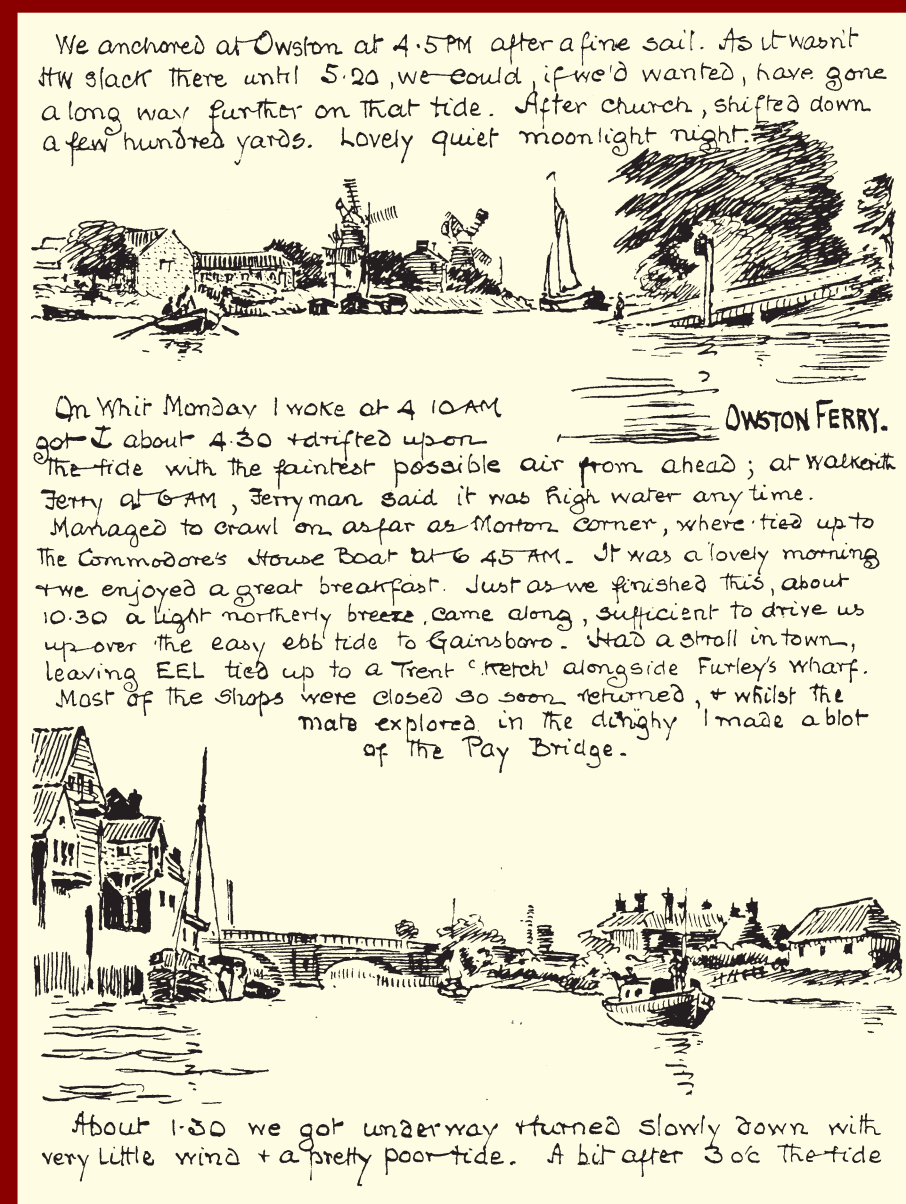 We anchored at Owston at 4·5PM after a fine sail. As it wasn't
HW slack there until 5·20, we could, if we'd wanted, have gone
a long way further on that tide. After church, shifted down
a few hundred yards. Lovely quiet moonlight night.
OWSTON FERRY.
On Whit Monday I woke at 4 10 AM
got ⚓ about 4·30 + drifted up on
the tide with the faintest possible air from ahead; at Walkerith
Ferry at 6 AM, Ferryman said it was high water any time.
Managed to crawl on as far as Morton corner, where tied up to
the Commodore's House Boat at 6 45 AM. It was a lovely morning
+ we enjoyed a great breakfast. Just as we finished this, about
10·30 a light northerly breeze, came along, sufficient to drive us
up over the easy ebb tide to Gainsboro. Had a stroll in town,
leaving EEL tied up to a Trent 'Ketch' alongside Furley's wharf.
Most of the shops were closed so soon returned, + whilst the
mate explored in the dinghy I made a blot
of the Pay Bridge.
About 1·30 we got underway + turned slowly down with
very little wind + a pretty poor tide. A bit after 3 oc the tide